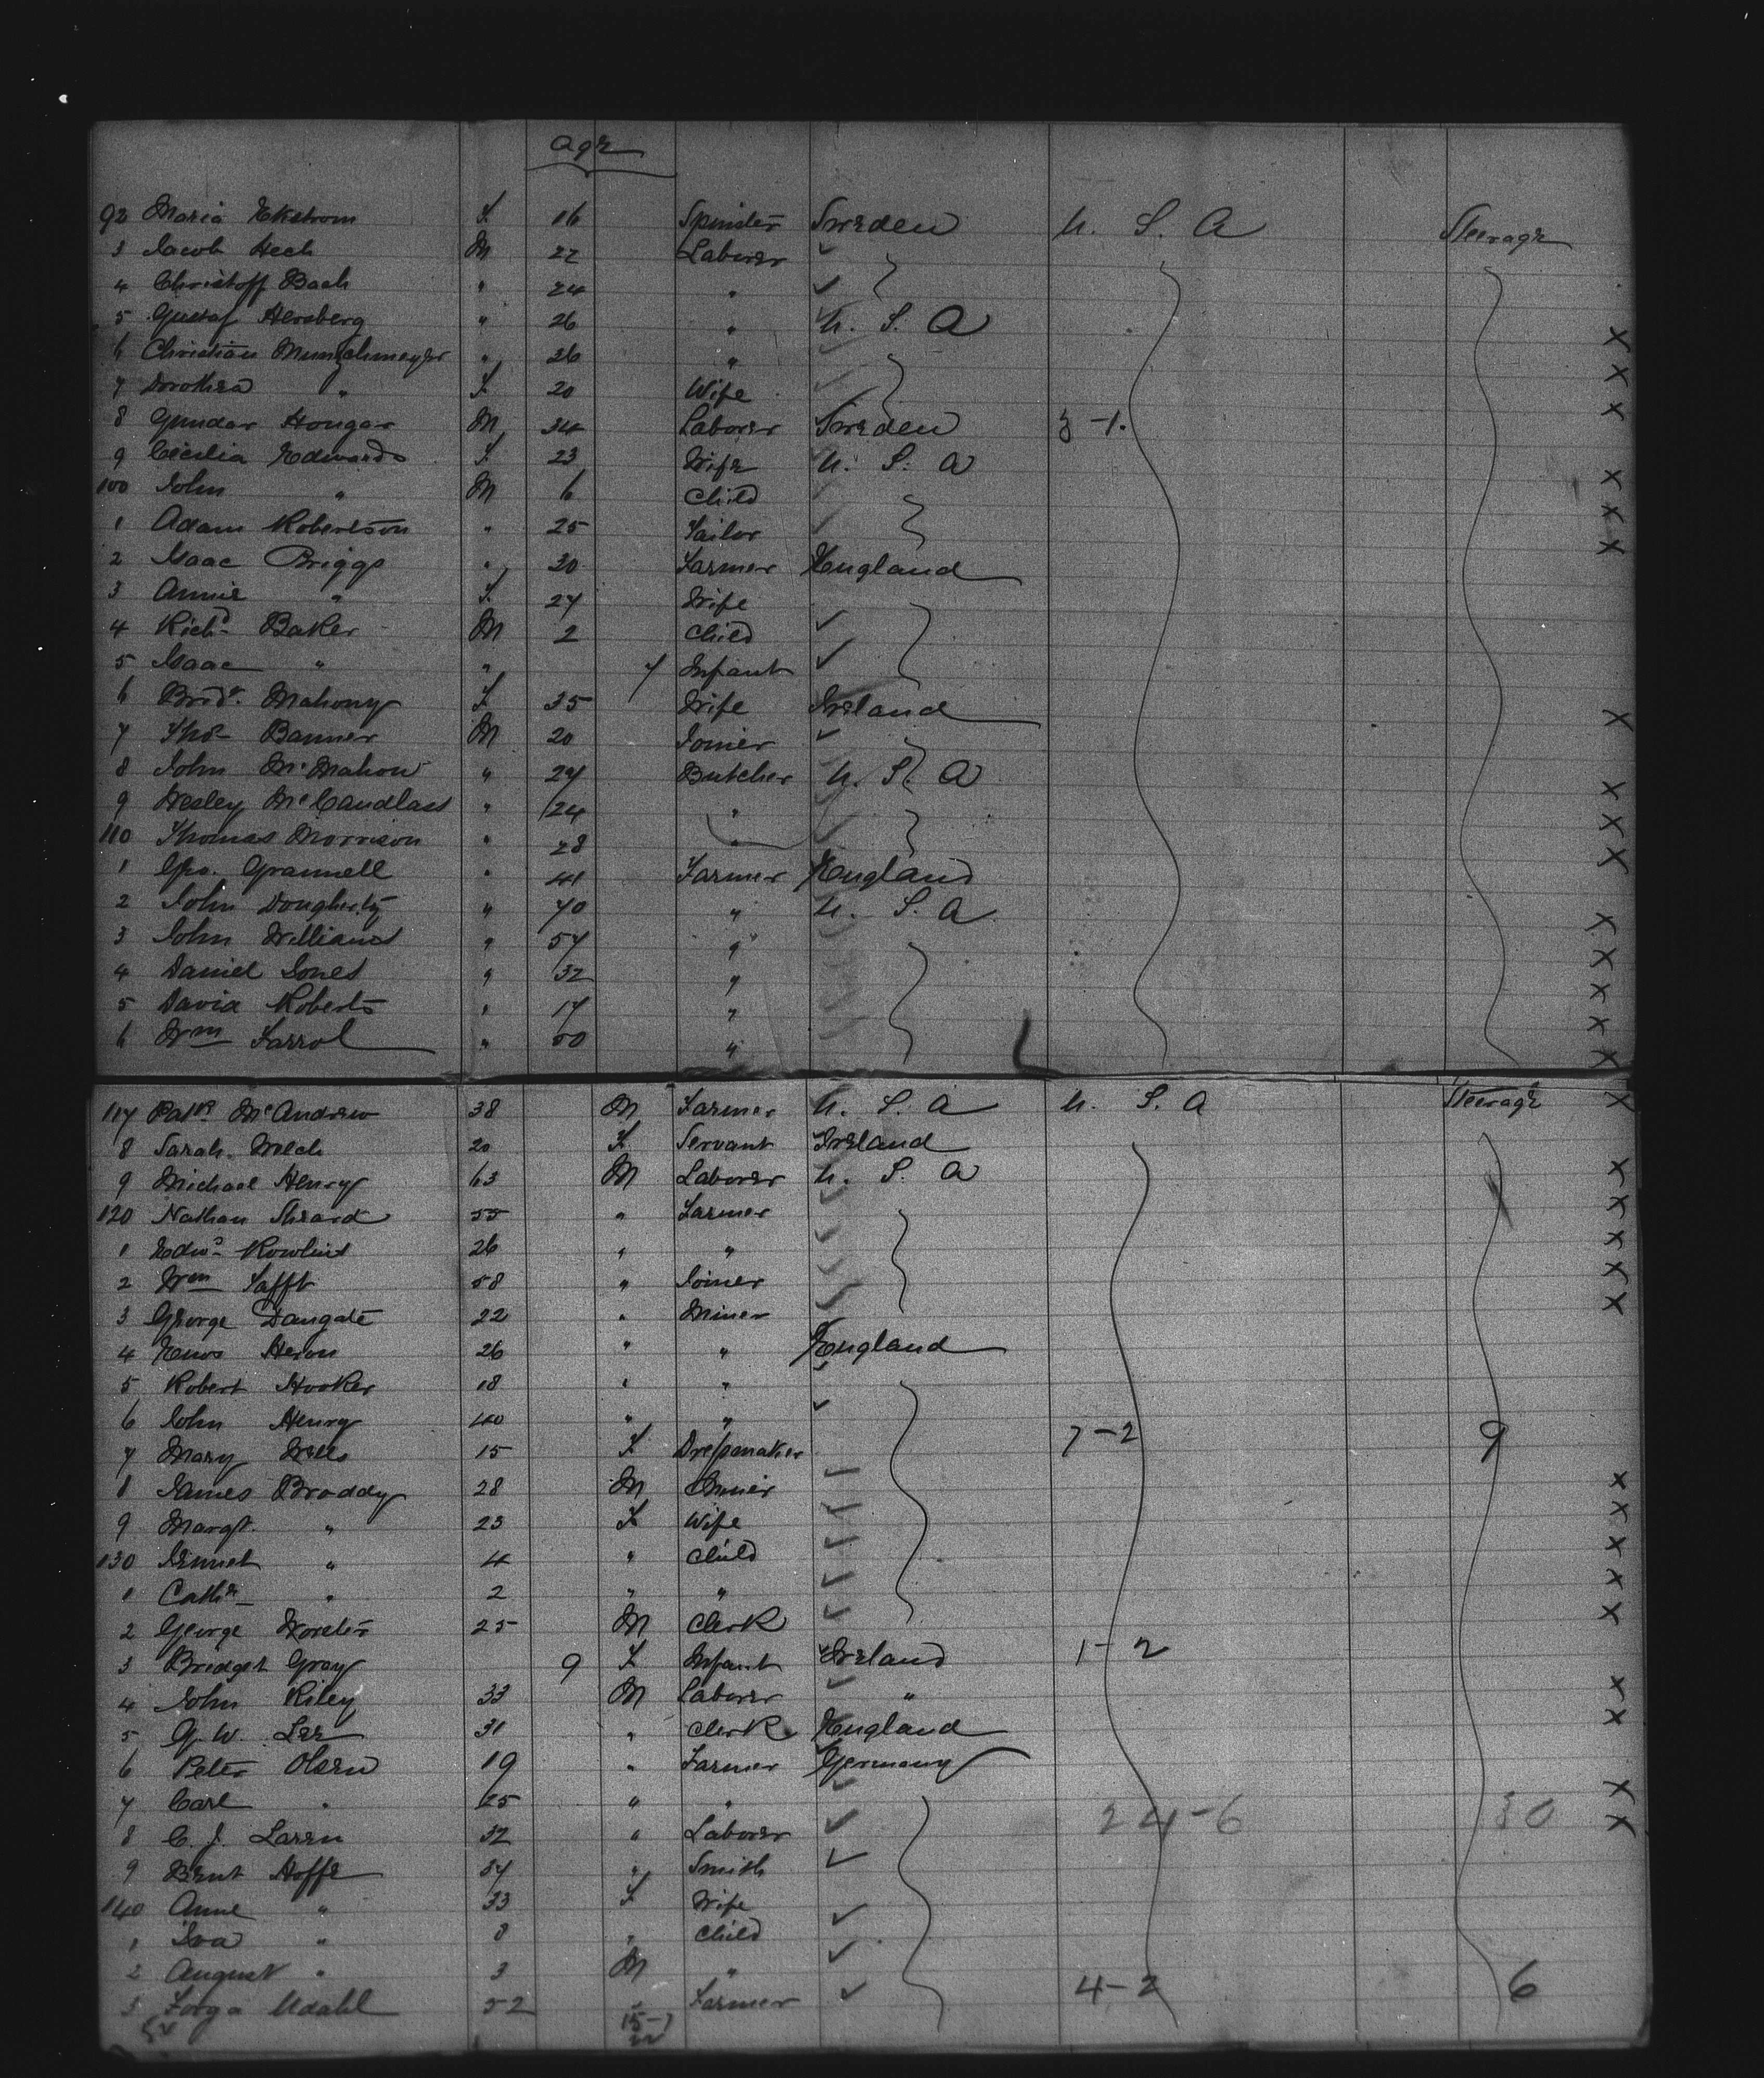 Age
92 Maria Ekstrom F. 16 Spinster Sweden U. S. A Steerage
3 Jacob Hech M 22 Laborer ✓
4 Christoff Bach " 24 " ✓
5 Gustaf Hersberg " 26 " U. S. A X
6 Christian Munschmeyer " 26 " X
7 Dorothea " F. 20 Wife X
8 Gundar Hougar M 34 Laborer Sweden 3-1.
9 Cecilia Edwards F. 23 Wife U. S. A X
100 John " M 6 Child X
1 Adam Robertson " 25 Tailor X
2 Isaac Briggs " 20 Farmer England
3 Annie " F. 27 Wife
4 Richd Baker M 2 Child ✓
5 Isaac " " 7 Infant ✓
6 Bridt. Mahony F 35 Wife Ireland X
7 Thos Banner M 20 Joiner ✓
8 John McMahon " 27 Butcher U. S. A X
9 Wesley McCandlass " 24 " X
110 Thomas Morrison " 28 " X
1 Geo. Grannell " 41 Farmer England
2 John Dougherty " 70 " U. S. A X
3 John Williams " 57 " X
4 Daniel Jones " 32 " X
5 David Roberts " 17 " X
6 Wm Farrol " 50 " X
117 Patk McAndrew 38 M Farmer U. S. A U. S. A Steerage X
8 Sarah Welch 20 F. Servant Ireland
9 Michael Henry 63 M Laborer U. S. A X
120 Nathan Sheard 55 " Farmer X
1 Edwd Rowlins 26 " " X
2 Wm Tafft 58 " Joiner X
3 George Dangate 22 " Miner X
4 Enos Heron 26 " " England
5 Robert Hooker 18 " "
6 John Henry 40 " " ✓
7 Mary Wells 15 F Dressmaker 7-2 9
8 James Broddy 28 M Miner X
9 Margt. " 23 F Wife X
130 Jennet " 4 " Child X
1 Cathe " 2 " " X
2 George Worster 25 M Clerk X
3 Bridget Gray 9 F Infant Ireland 1-2
4 John Riley 33 M Laborer " X
5 G. W. Lee 31 " Clerk England X
6 Peter Olsen 19 " Farmer Germany
7 Carl " 25 " " 24-6 30 X
8 C. J. Larsen 32 " Laborer ✓ X
9 Brut Hoffe 37 " Smith ✓
140 Anne " 33 F Wife ✓
1 Iva " 8 " Child
2 August " 3 M " ✓
3 Forga Udahl 52 " Farmer ✓ 4-2 6